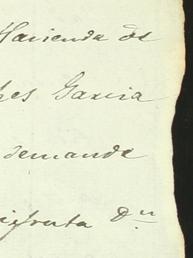 Hacienda de
Garcia
demanda
disfruta Dn